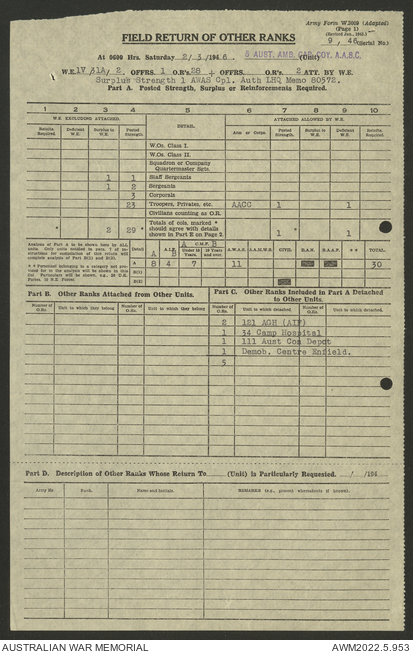 Army Form W.3009 (Adapted)
(Page 1)
9 / 46 (Serial No.)
FIELD RETURN OF OTHER RANKS
At 0600 Hrs. Saturday 2/3/1946. 5 AUST. AMB. CAR COY. A.A.B.C. (Unit)
W.E. 1V/41A/2. OFFRS. 1 O.R's. 28 + OFFRS. O.R's. 2 ATT. BY W.E.
Surplus Strength 1 AWAS Cpl. Auth LHQ Memo 80572.
Part A. Posted Strength, Surplus or Reinforcements Required.
1 2 3 4 5 6 7 8 9 10
W.E. EXCLUDING ATTACHED. DETAIL ATTACHED ALLOWED BY W.E.
Reinfts. Required. Deficient W.E. Surplus to W.E. Posted Strength. Arm or Corps. Posted Strength. Surplus to W.E. Deficient W.E. Reinfts. Required.
W.Os. Class I.
W.Os. Class II.
Squadron or Company Quartermaster Sgts.
1 1 Staff Sergeants
1 2 Sergeants
3 Corporals
23 Troopers, Privates, etc. AACC 1 1
Civilians counting as O.R.
* 2 29 * Totals of cols. marked * should agree with details shown in Part E on Page 2. 1 * 1 *
Analysis of Part A to be shown here by ALL units. Detail A.I.F. C.M.F. Under 19 Years 19 Years and over. A.W.A.S. A.A.M.W.S. CIVIL R.A.N. R.A.A.F. * * TOTAL.
A B A B
A 8 4 7 11 30
B(i)
B(ii)
Part B. Other Ranks Attached from Other Units.
Part C. Other Ranks Included in Part A Detached to Other Units.
Number of O.Rs. Unit to which they belong Number of O.Rs. Unit to which they belong Number of O.Rs. Unit to which they belong Number of O.Rs. Unit to which detached. Number of O.Rs. Unit to which detached.
2 121 AGH (AIF)
1 34 Camp Hospital
1 111 Aust Con Depot
1 Demob. Centre Enfield.
5
Part D. Description of Other Ranks Whose Return To (Unit) is Particularly Requested. / /194
Army No. Rank. Name and Initials. REMARKS (e.g., present whereabouts if known).
AUSTRALIAN WAR MEMORIAL AWM2022.5.953